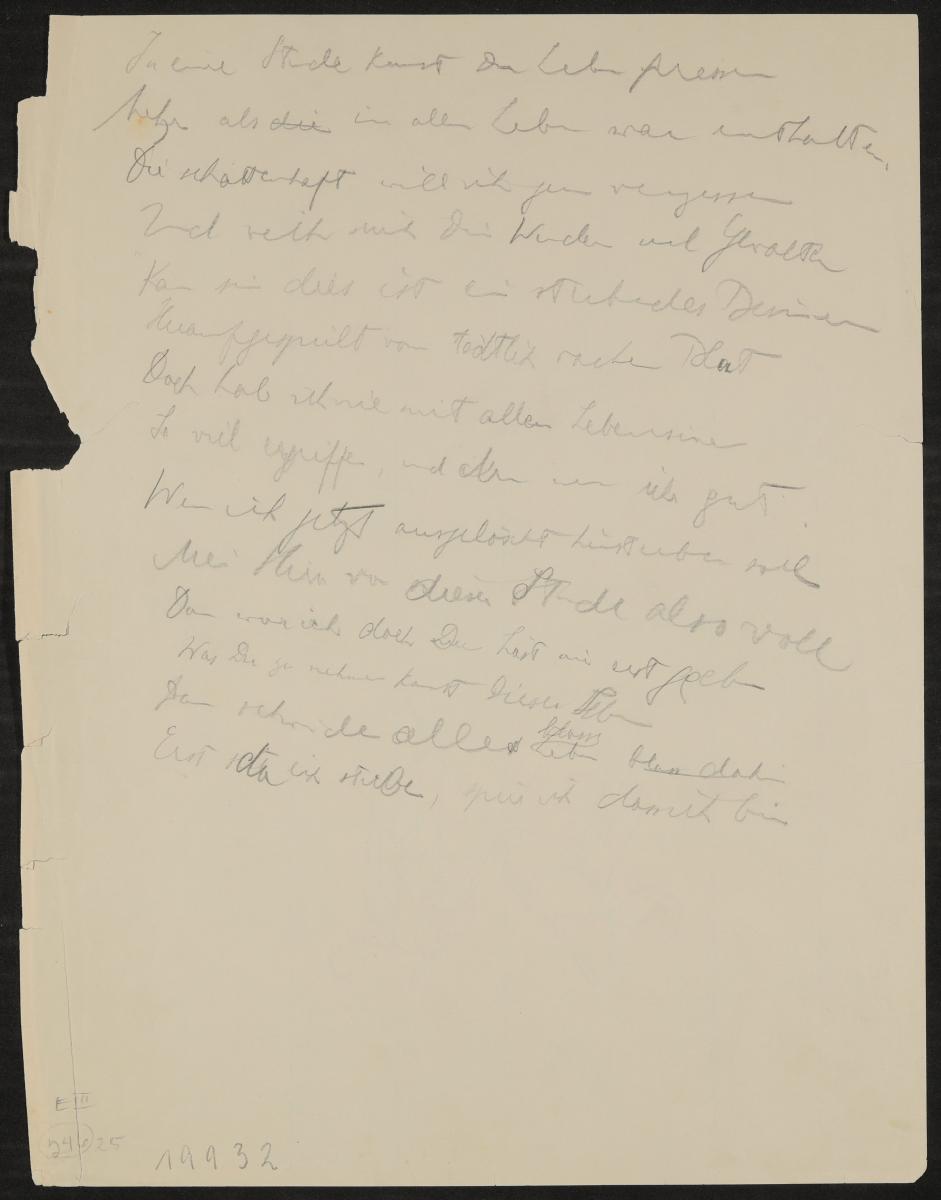 In eine Stunde kanst Du Leben pressen
als die in allem Leben war enthalten,
Die schattenhaft will ich gern vergessen
Und weih mich Dein Wunden und Gewalten
Kan sein dies ist ein sterbendes Besinnen
Heraufgespült vom tödtlich wachen Blut
Doch hab ich nie mit allen Lebenssinen
So viel ergriffen, und nen ichs gut.
Wen ich jetzt ausgelöscht hinsterben soll
Mein Hirn von dieser Stunde also voll
Dan war ich doch Du hast mir erst geben
Was Du zu nehmen kanst dieses Leben
blasse
Dan schwinde alles Leben blass dahin
Erst da ich sterbe, spür ich dass ich bin
E III
24 25
19932